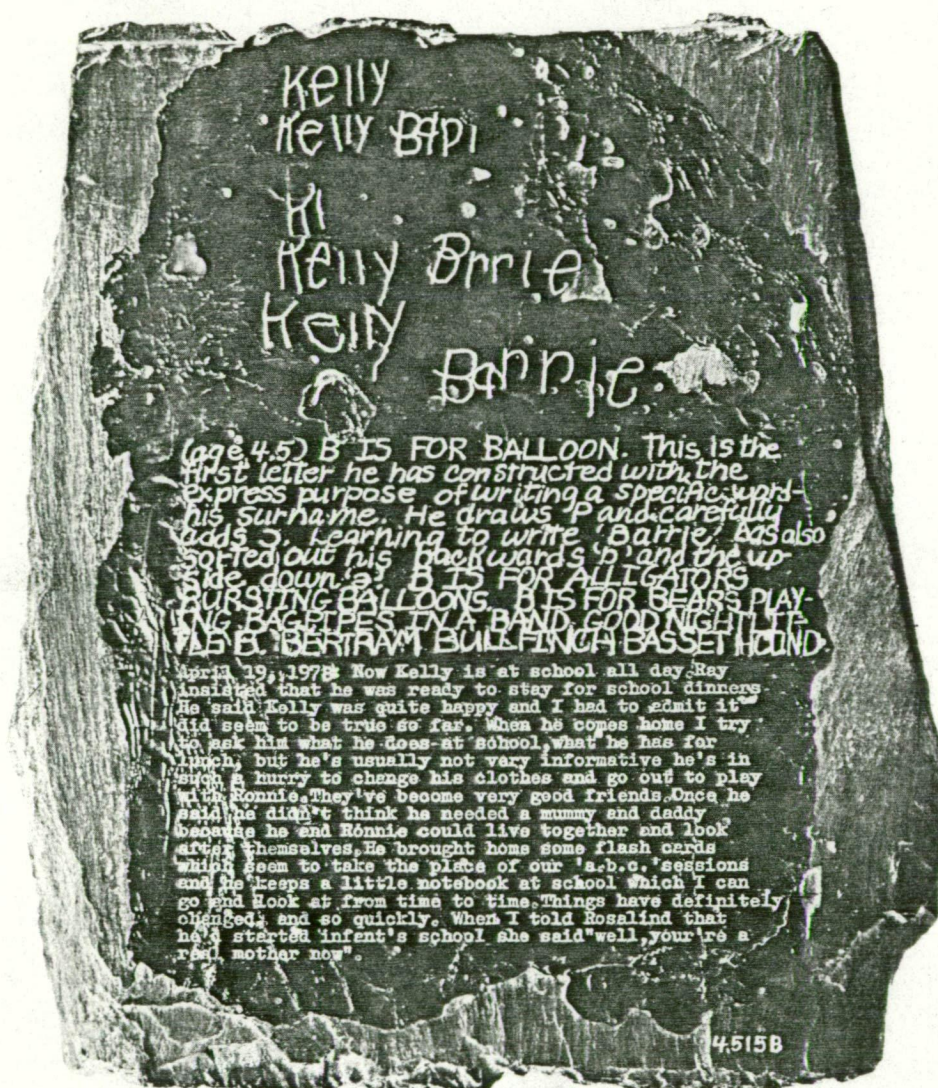 Kelly
Kelly Bapi
Kl
Kelly Brrie
Kelly
Barrie
(age 4.5) B IS FOR BALLOON. This is the
first letter he has constructed with the
express purpose of writing a specific word-
his surname. He draws P and carefully
adds ɔ. Learning to write 'Barrie' has also
sorted out his backwards 'b' and the up
side down 'a'. B IS FOR ALLIGATORS
BURSTING BALLOONS. B IS FOR BEARS PLAY-
ING BAGPIPES IN A BAND. GOOD NIGHT LIT-
TLE B. BERTRAM BULLFINCH BASSET HOUND.
April 19, 1978 Now Kelly is at school all day.Ray
insisted that he was ready to stay for school dinners
He said Kelly was quite happy and I had to admit it
did seem to be true so far. When he comes home I try
to ask him what he does at school,what he has for
lunch, but he's usually not very informative he's in
such a hurry to change his clothes and go out to play
with Ronnie.They've become very good friends.Once he
said he didn't think he needed a mummy and daddy
because he and Ronnie could live together and look
after themselves.He brought home some flash cards
which seem to take the place of our 'a.b.c.'sessions
and he keeps a little notebook at school which I can
go and look at from time to time.Things have definitely
changed, and so quickly. When I told Rosalind that
he'd started infant's school she said"well,your're a
real mother now".
4.515B